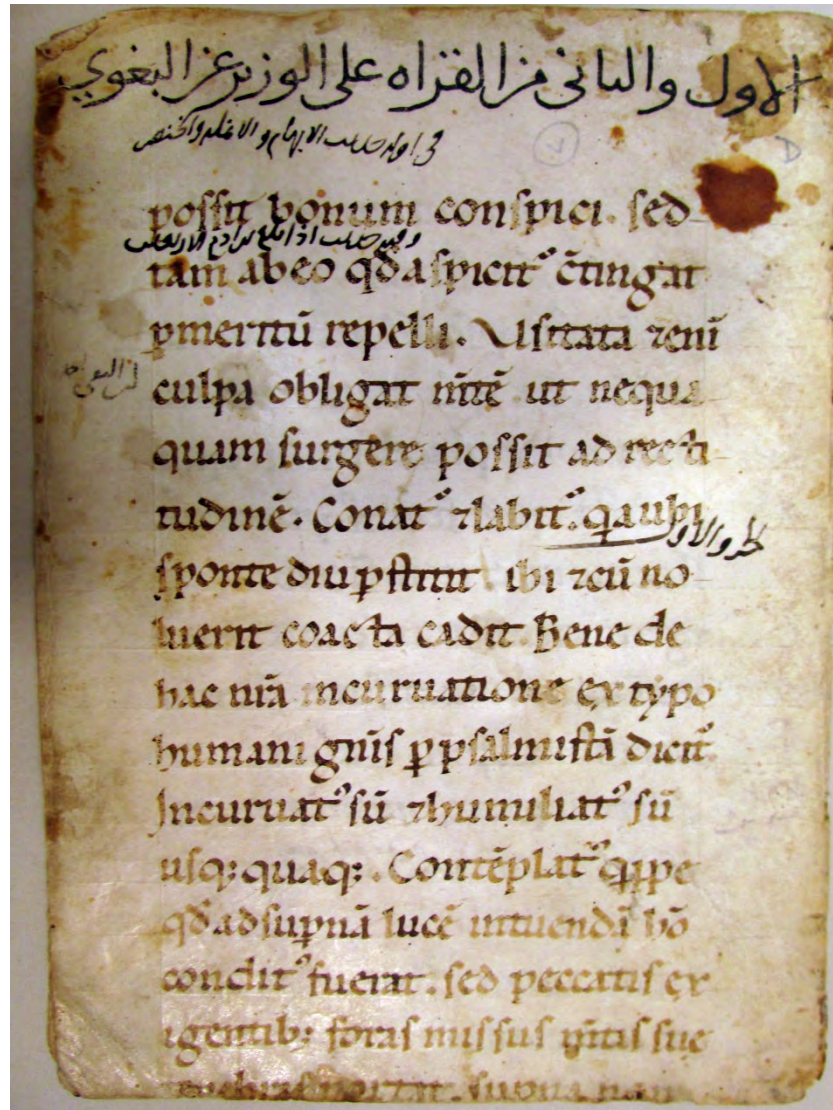 الاول والثاني من القراه على الوزير عن البغوي
في اوله حديث الابهام و
possit bonum conspici. sed
وفيه حديث اذا
tam ab eo qd̄ aspicit᷒ c̄tingat
ꝑ meritū repelli. Usitata ⁊eni
culpa obligat m̄tē ut nequa
quam surgere possit ad recti
tudinē. Conat᷒ ⁊labit᷒. q̄a ubi
sponte diu ꝑstitit ibi ⁊cū no
luerit coacta cadit. Bene de
hac nr̄a incuruatione ex typo
humani gn̄is ꝑ psalmistā dicit᷒.
Incuruat᷒ sū ⁊humiliat᷒ sū
usq; quaq;. Contēplat᷒ q̄ppe
qd̄ ad suꝑnā lucē intuendā hō
condit᷒ fuerat. sed peccatis ex
igentib; foras missus m̄tis sue
tenebras portat. suꝑna non